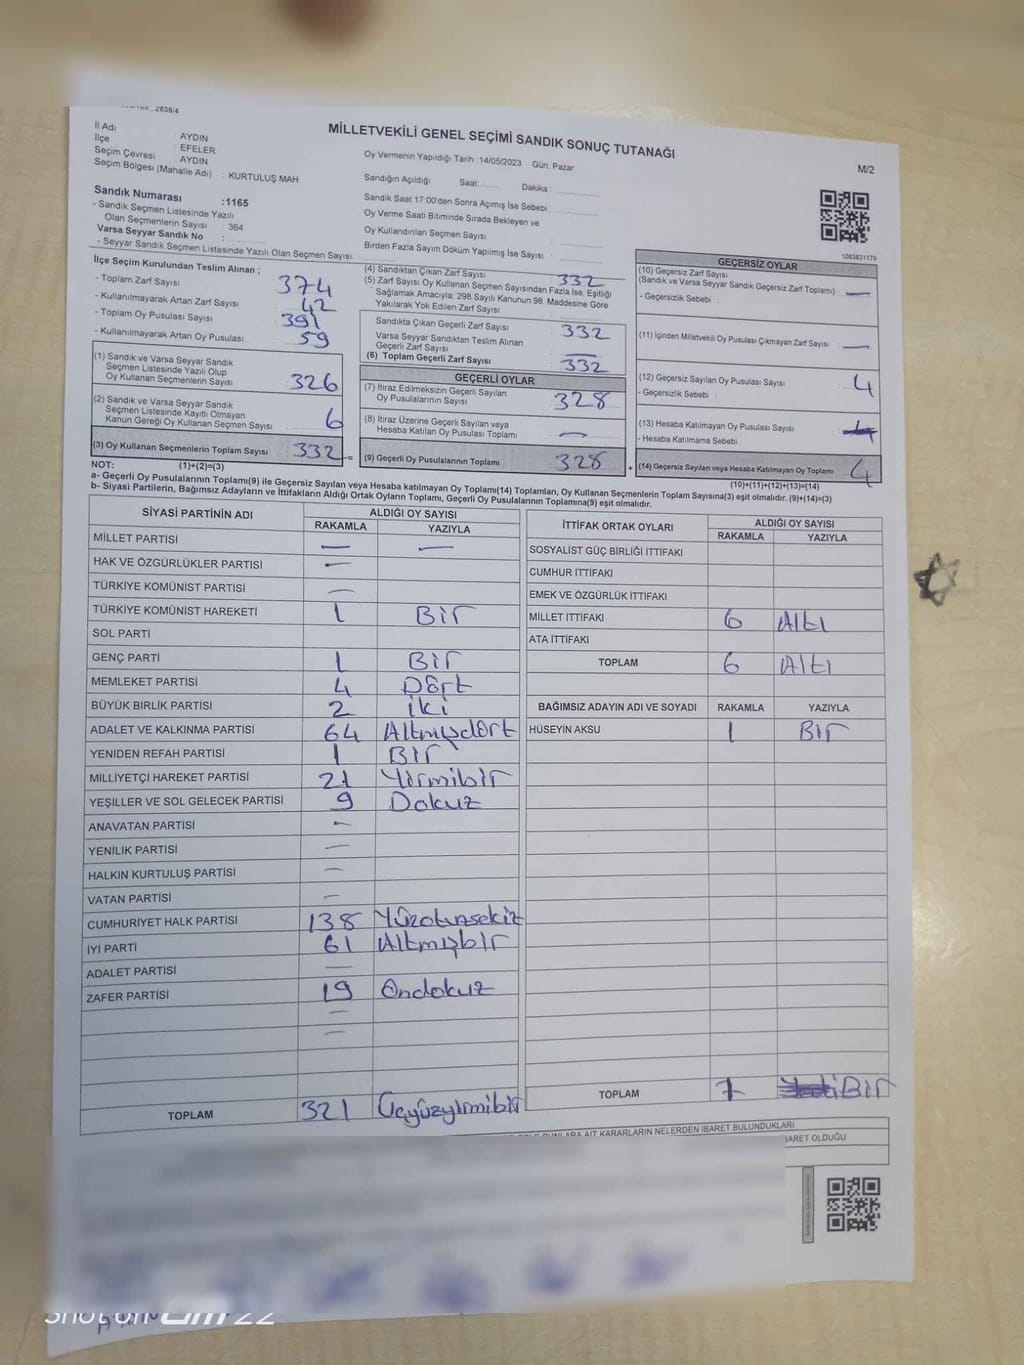 2839/4
MİLLETVEKİLİ GENEL SEÇİMİ SANDIK SONUÇ TUTANAĞI
M/2
İl Adı : AYDIN
İlçe : EFELER
Seçim Çevresi : AYDIN
Seçim Bölgesi (Mahalle Adı) : KURTULUŞ MAH.
Sandık Numarası :1165
- Sandık Seçmen Listesinde Yazılı
Olan Seçmenlerin Sayısı : 364
Varsa Seyyar Sandık No :
- Seyyar Sandık Seçmen Listesinde Yazılı Olan Seçmen Sayısı
Oy Vermenin Yapıldığı Tarih : 14/05/2023 Gün: Pazar
Sandığın Açıldığı Saat: Dakika :
Sandık Saat 17:00'den Sonra Açımış İse Sebebi :
Oy Verme Saati Bitiminde Sırada Bekleyen ve
Oy Kullandırılan Seçmen Sayısı :
Birden Fazla Sayım Döküm Yapılmış İse Sayısı :
1083831179
İlçe Seçim Kurulundan Teslim Alınan ;
- Toplam Zarf Sayısı : 374
- Kullanılmayarak Artan Zarf Sayısı : 42
- Toplam Oy Pusulası Sayısı : 391
- Kullanılmayarak Artan Oy Pusulası : 59
(1) Sandık ve Varsa Seyyar Sandık
Seçmen Listesinde Yazılı Olup
Oy Kullanan Seçmenlerin Sayısı : 326
(2) Sandık ve Varsa Seyyar Sandık
Seçmen Listesinde Kayıtlı Olmayan
Kanun Gereği Oy Kullanan Seçmen Sayısı : 6
(3) Oy Kullanan Seçmenlerin Toplam Sayısı 332 =
(1)+(2)=(3)
(4) Sandıktan Çıkan Zarf Sayısı : 332
(5) Zarf Sayısı Oy Kullanan Seçmen Sayısından Fazla İse, Eşitliği
Sağlamak Amacıyla; 298 Sayılı Kanunun 98. Maddesine Göre
Yakılarak Yok Edilen Zarf Sayısı :
Sandıkta Çıkan Geçerli Zarf Sayısı : 332
Varsa Seyyar Sandıktan Teslim Alınan
Geçerli Zarf Sayısı : —
(6) Toplam Geçerli Zarf Sayısı : 332
GEÇERLİ OYLAR
(7) İtiraz Edilmeksizin Geçerli Sayılan
Oy Pusulalarının Sayısı : 328
(8) İtiraz Üzerine Geçerli Sayılan veya
Hesaba Katılan Oy Pusulası Toplamı : —
(9) Geçerli Oy Pusulalarının Toplamı : 328 +
GEÇERSİZ OYLAR
(10) Geçersiz Zarf Sayısı
(Sandık ve Varsa Seyyar Sandık Geçersiz Zarf Toplamı) : —
- Geçersizlik Sebebi :
(11) İçinden Milletvekili Oy Pusulası Çıkmayan Zarf Sayısı : —
(12) Geçersiz Sayılan Oy Pusulası Sayısı : 4
- Geçersizlik Sebebi :
(13) Hesaba Katılmayan Oy Pusulası Sayısı :
- Hesaba Katılmama Sebebi :
(14) Geçersiz Sayılan veya Hesaba Katılmayan Oy Toplamı : 4
(10)+(11)+(12)+(13)=(14)
NOT:
a- Geçerli Oy Pusulalarının Toplamı(9) ile Geçersiz Sayılan veya Hesaba katılmayan Oy Toplamı(14) Toplamları, Oy Kullanan Seçmenlerin Toplam Sayısına(3) eşit olmalıdır. (9)+(14)=(3)
b- Siyasi Partilerin, Bağımsız Adayların ve İttifakların Aldığı Ortak Oyların Toplamı, Geçerli Oy Pusulalarının Toplamına(9) eşit olmalıdır.
SİYASİ PARTİNİN ADI ALDIĞI OY SAYISI
RAKAMLA YAZIYLA
MİLLET PARTİSİ — —
HAK VE ÖZGÜRLÜKLER PARTİSİ —
TÜRKİYE KOMÜNİST PARTİSİ —
TÜRKİYE KOMÜNİST HAREKETİ 1 Bir
SOL PARTİ
GENÇ PARTİ 1 Bir
MEMLEKET PARTİSİ 4 Dört
BÜYÜK BİRLİK PARTİSİ 2 İki
ADALET VE KALKINMA PARTİSİ 64 Altmışdört
YENİDEN REFAH PARTİSİ 1 Bir
MİLLİYETÇİ HAREKET PARTİSİ 21 Yirmibir
YEŞİLLER VE SOL GELECEK PARTİSİ 9 Dokuz
ANAVATAN PARTİSİ —
YENİLİK PARTİSİ —
HALKIN KURTULUŞ PARTİSİ —
VATAN PARTİSİ —
CUMHURİYET HALK PARTİSİ 138 Yüzotuzsekiz
İYİ PARTİ 61 Altmışbir
ADALET PARTİSİ —
ZAFER PARTİSİ 19 Ondokuz
—
—
TOPLAM 321 Üçyüzyirmibir
İTTİFAK ORTAK OYLARI ALDIĞI OY SAYISI
RAKAMLA YAZIYLA
SOSYALİST GÜÇ BİRLİĞİ İTTİFAKI
CUMHUR İTTİFAKI
EMEK VE ÖZGÜRLÜK İTTİFAKI
MİLLET İTTİFAKI 6 Altı
ATA İTTİFAKI
TOPLAM 6 Altı
BAĞIMSIZ ADAYIN ADI VE SOYADI RAKAMLA YAZIYLA
HÜSEYİN AKSU 1 Bir
TOPLAM 7 Bir
AİT KARARLARIN NELERDEN İBARET BULUNDUKLARI
İBARET OLDUĞU